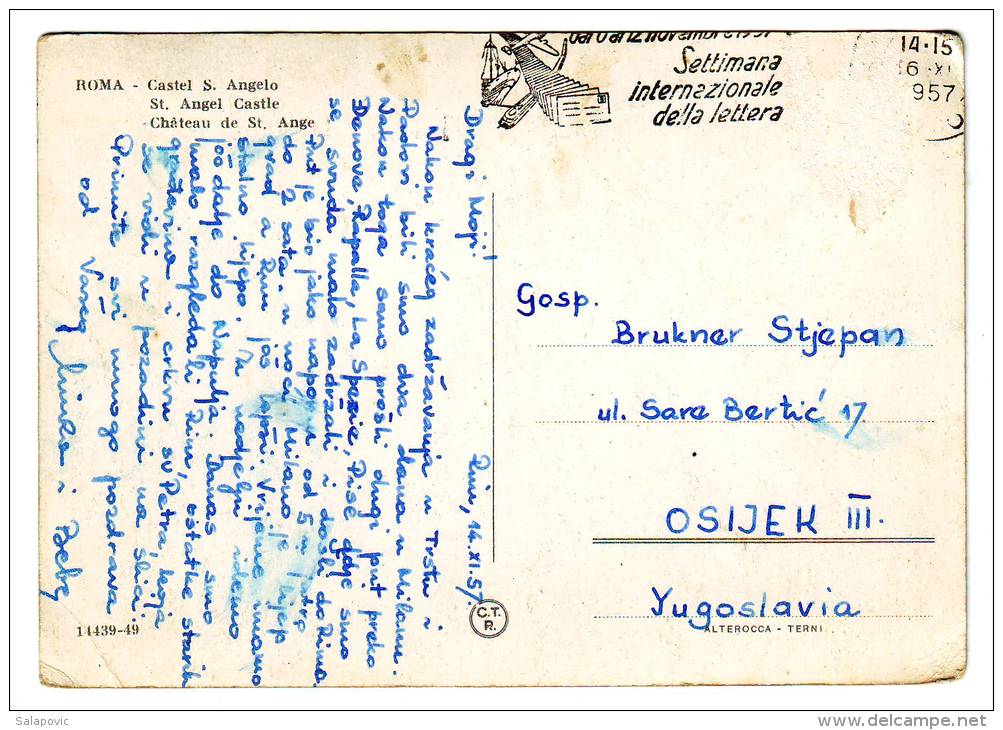 ROMA - Castel S. Angelo
St. Angel Castle
-Château de St. Ange
dal 6 al 12 novembre 1957
Settimana
internazionale
della lettera
14-15
6 XI
957
Rim, 14.XI.57.
Dragi Moji!
Nakon kraćeg zadržavanja u Trstu i
Padovi bili smo dva dana u Milanu.
Nakon toga smo prošli drugi put preko
Đenove, Rapalla, La Spezie, Pise gdje smo
se svuda malo zadržali i došli do Rima.
Put je bio jako naporan od 5 u jutro
do 2 sata u noći. Milano je lijep
grad a Rim još ljepši. Vrijeme imamo
stalno lijepo. U nedjelju idemo
još dalje do Napulja. Danas smo
malo razgledali Rim, ostatke starih
građevina i crkvu sv. Petra, koja
se vidi u pozadini na slici.
Primite svi mnogo pozdrava
od Vašeg
i Bebe
Gosp.
Brukner Stjepan
ul. Sare Bertić 17
OSIJEK III.
Yugoslavia
C.T.
R.
ALTEROCCA - TERNI
14439-49
Salapovic
delcampe.net